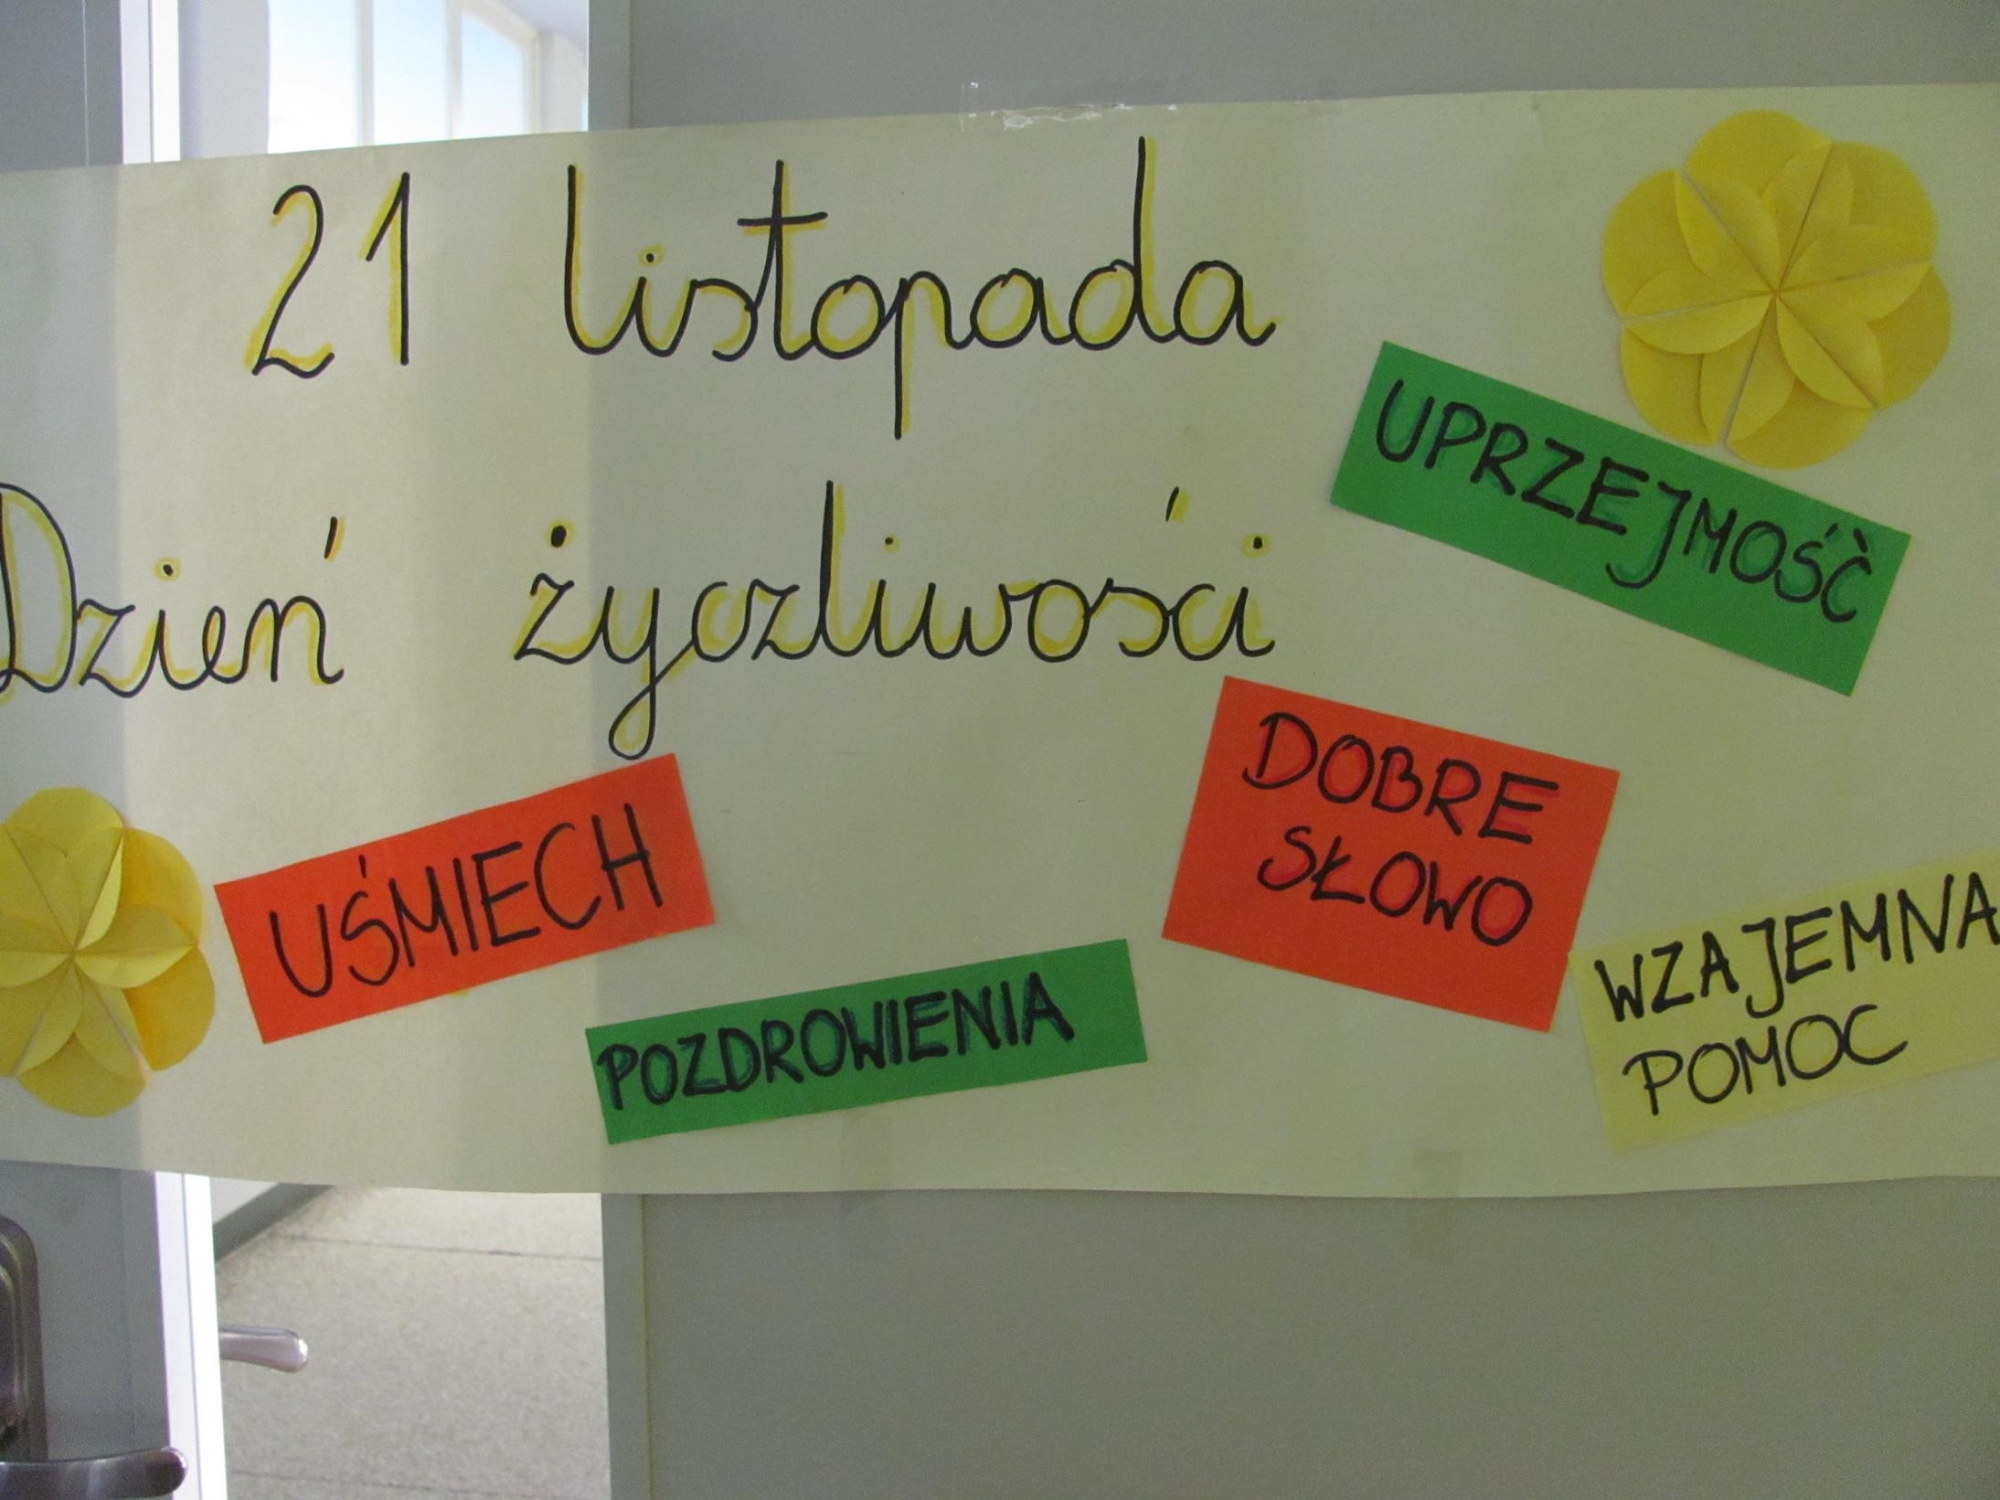 21 listopada
Dzień życzliwości
UPRZEJMOŚĆ
UŚMIECH
POZDROWIENIA
DOBRE
SŁOWO
WZAJEMNA
POMOC